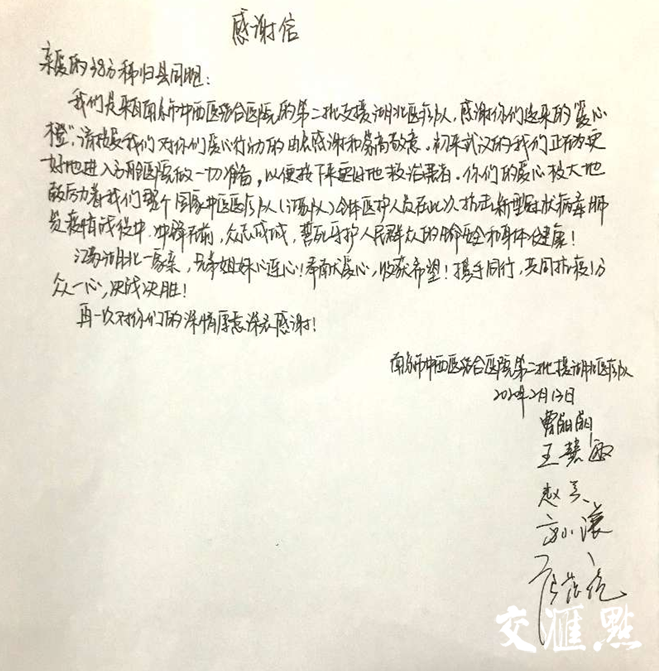 感谢信
亲爱的38万秭归县同胞：
我们是来自南京市中西医结合医院的第二批支援湖北医疗队，感谢你们送来的“爱心
橙”，请接受我们对你们爱心行动的由衷感谢和崇高敬意。初来武汉的我们正在为更
好地进入方舱医院做一切准备，以便接下来更好地救治患者。你们的爱心极大地
鼓励着我们整个国家中医医疗队（江苏队）全体医护人员在此次抗击新型冠状病毒肺
炎疫情战役中，冲锋在前，众志成城，誓死守护人民群众的生命安全和身体健康！
江苏湖北一家亲，兄弟姐妹心连心！奉献爱心，收获希望！携手同行，共同抗疫！万
众一心，决战决胜！
再一次对你们的深情厚意深表感谢！
南京市中西医结合医院第二批援湖北医疗队
2020年2月13日
曹朋朋
王慧敏
赵
交汇點